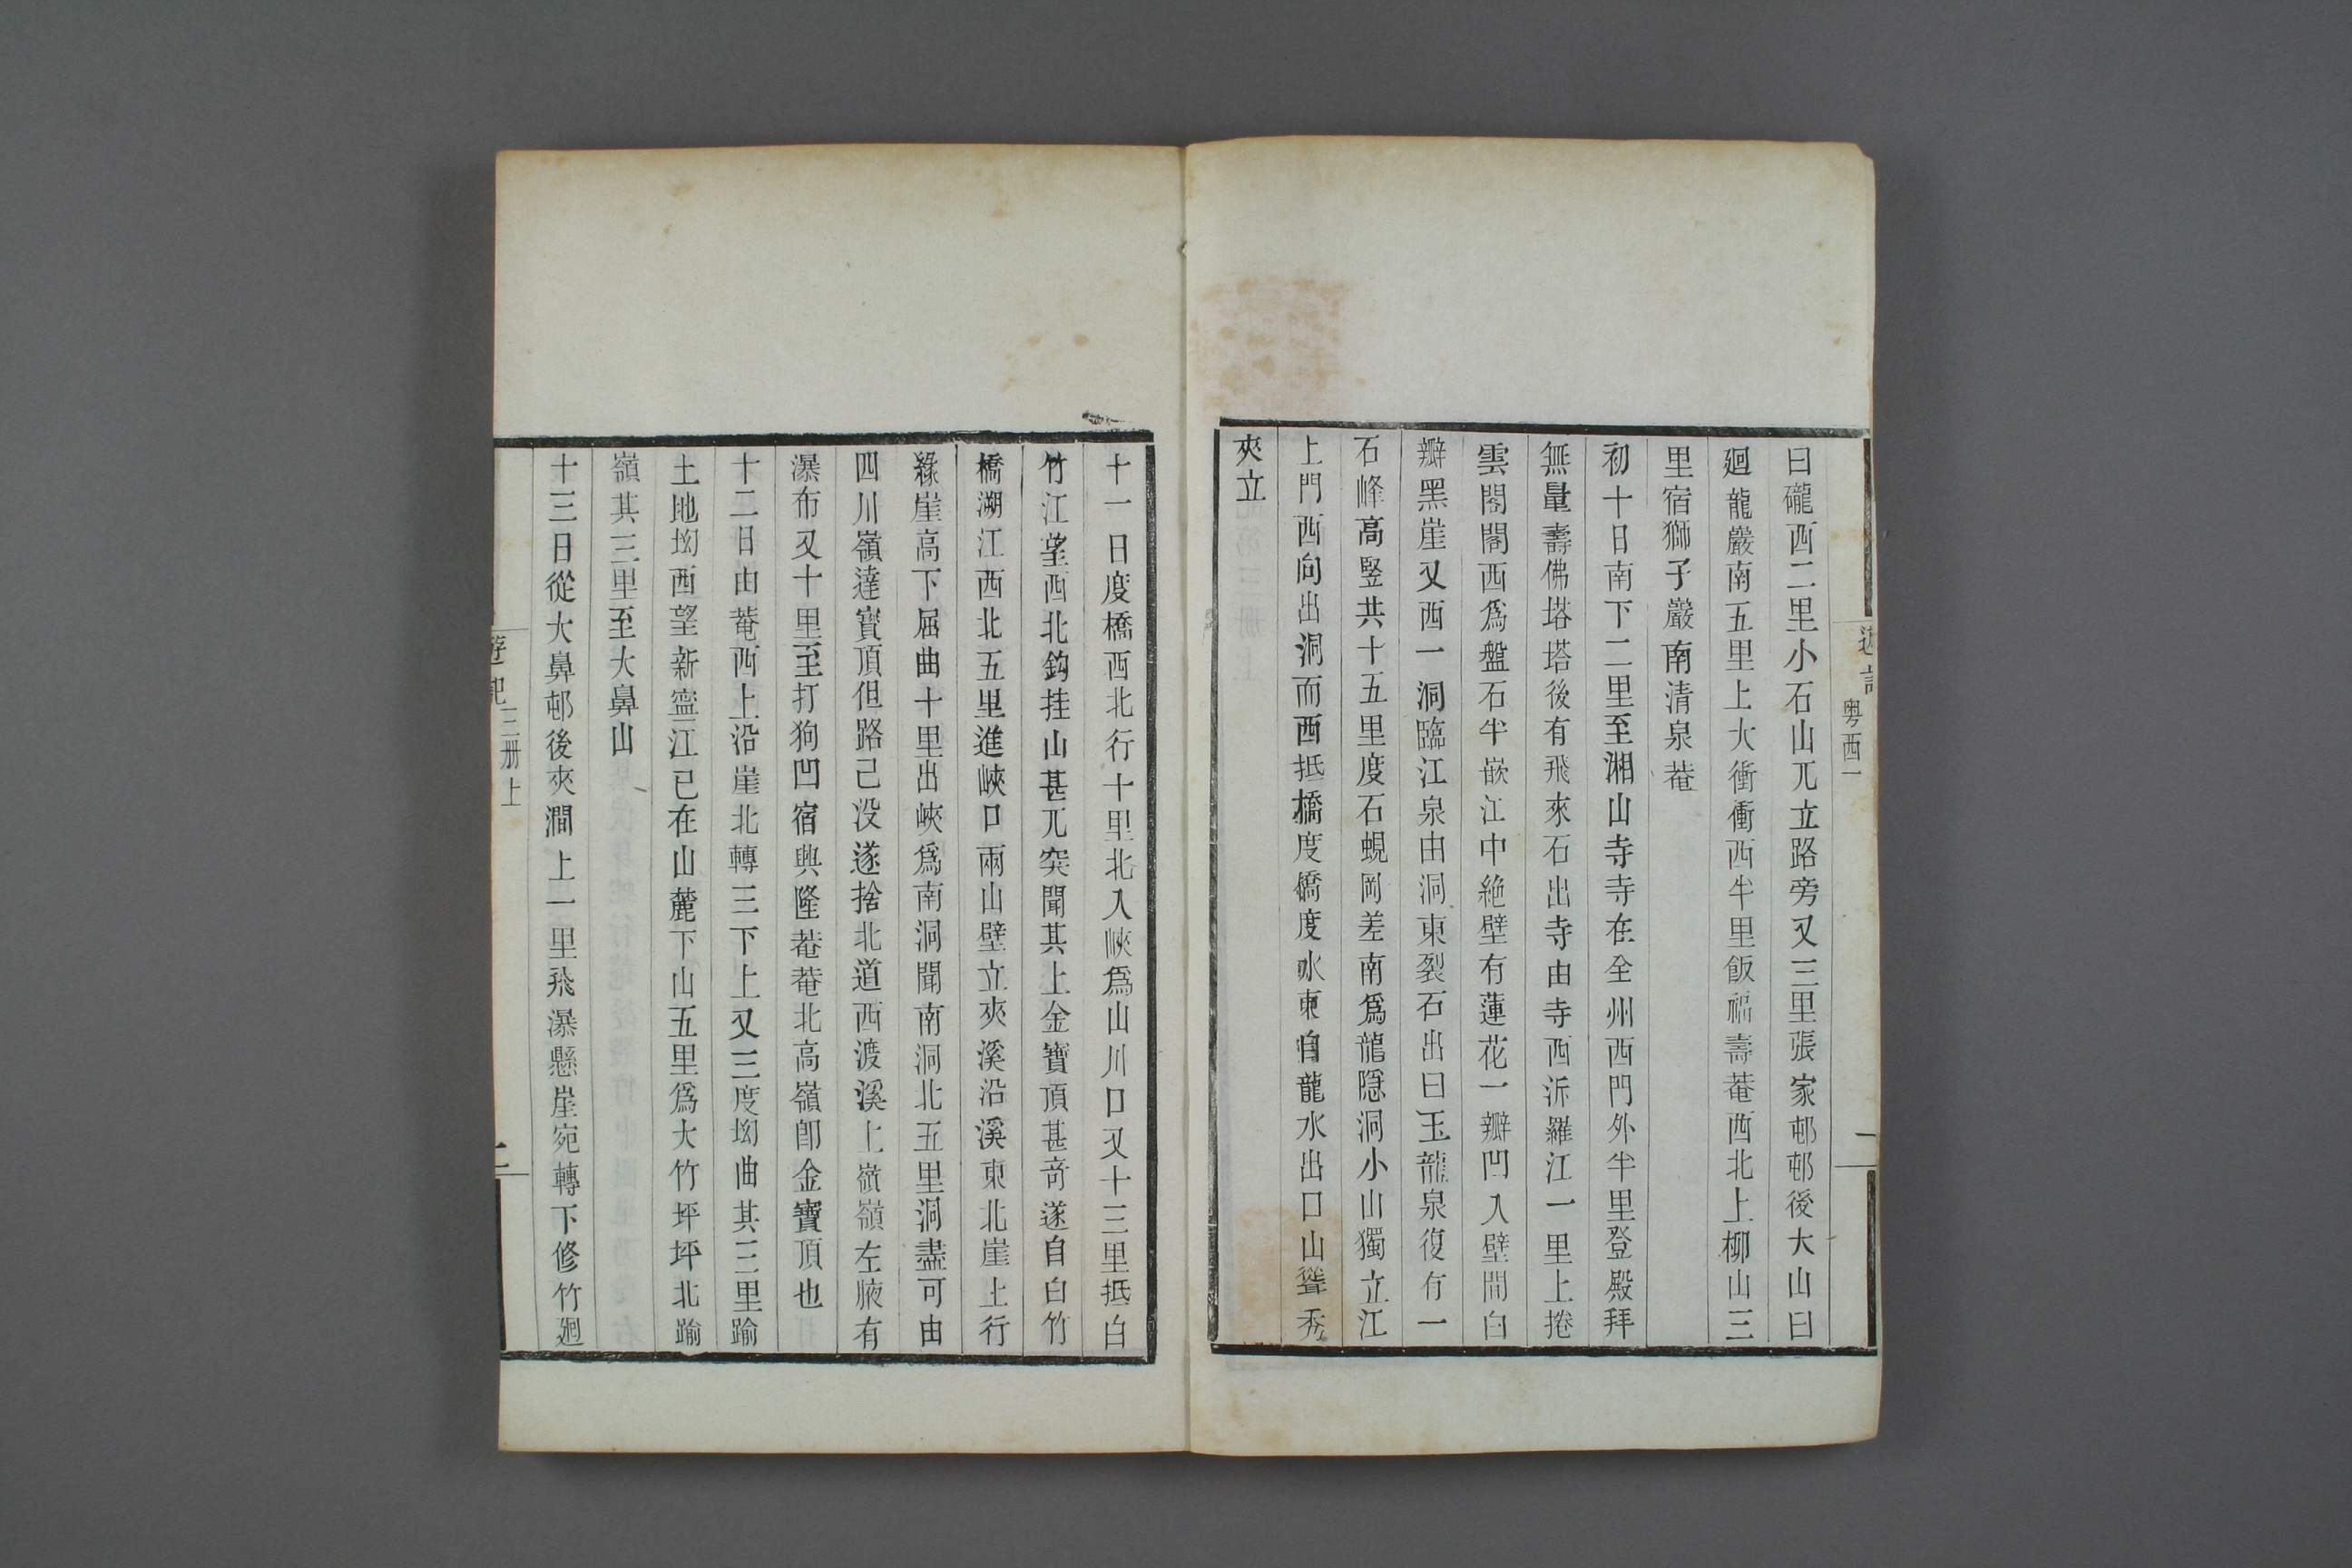 遊記
粤西一
一
曰礲西二里小石山兀立路旁又三里張家邨邨後大山曰
廻龍巖南五里上大衝衝西半里飯福壽菴西北上柳山三
里宿獅子巖南清泉菴
初十日南下二里至湘山寺寺在全州西門外半里登殿拜
無量壽佛塔塔後有飛來石出寺由寺西泝羅江一里上捲
雲閣閣西爲盤石半嵌江中絶壁有蓮花一瓣凹入壁間白
瓣黑崖又西一洞臨江泉由洞東裂石出曰玉龍泉復有一
石峰高竪共十五里度石蜆岡差南爲龍隱洞小山獨立江
上門西向出洞而西抵橋度橋度水東自龍水出口山聳秀
夾立
十一日度橋西北行十里北入峽爲山川口又十三里抵白
竹江望西北鈎挂山甚兀突聞其上金寶頂甚竒遂自白竹
橋溯江西北五里進峽口兩山壁立夾溪沿溪東北崖上行
綠崖高下屈曲十里出峽爲南洞聞南洞北五里洞盡可由
四川嶺達寳頂但路已没遂捨北道西渡溪上嶺嶺左腋有
瀑布又十里至打狗凹宿興隆菴菴北高嶺卽金寶頂也
十二日由菴西上沿崖北轉三下上又三度坳曲其三里踰
土地坳西望新寧江已在山麓下山五里爲大竹坪坪北踰
嶺其三里至大鼻山
十三日從大鼻邨後夾澗上一里飛瀑懸崖宛轉下修竹廻
遊記
三册上
二